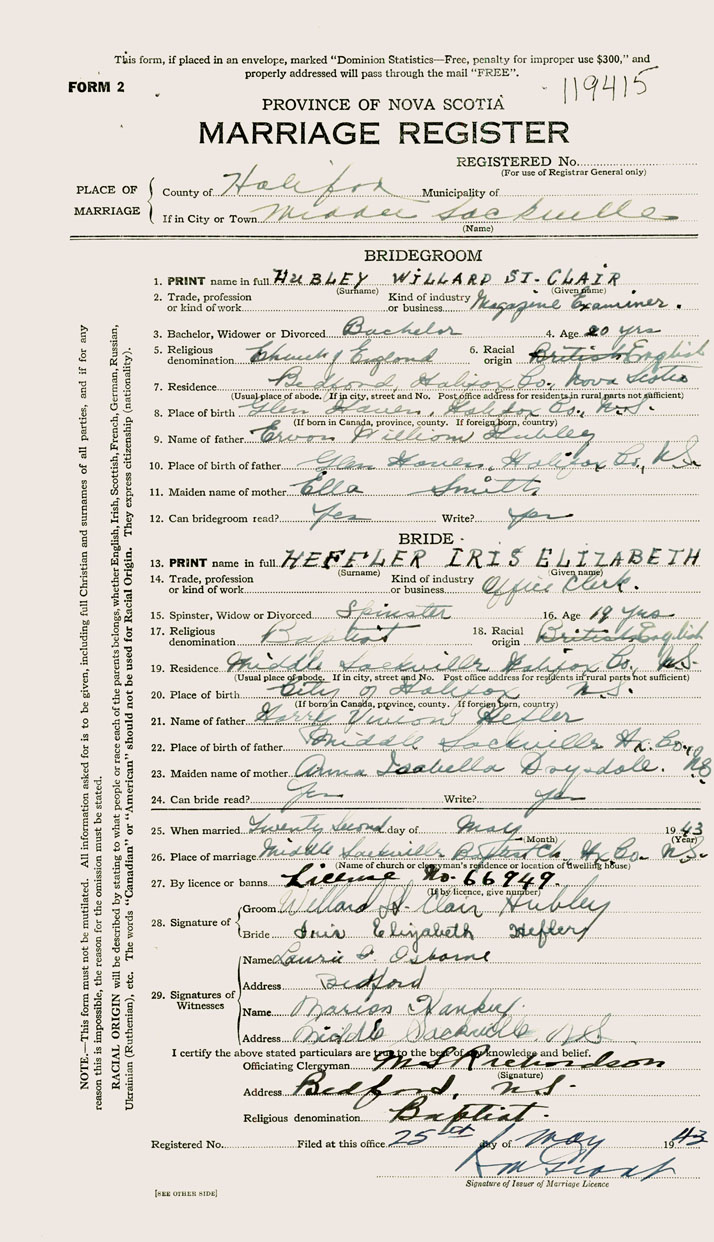 This form, if placed in an envelope, marked "Dominion Statistics—Free, penalty for improper use $300," and
properly addressed will pass through the mail "FREE".
FORM 2
119415
PROVINCE OF NOVA SCOTIA
MARRIAGE REGISTER
REGISTERED No.
(For use of Registrar General only)
PLACE OF MARRIAGE
County of Halifax Municipality of
If in City or Town Middle Sackville
(Name)
BRIDEGROOM
1. PRINT name in full HUBLEY WILLARD ST-CLAIR
(Surname) (Given name)
2. Trade, profession or kind of work Kind of industry or business Magazine Examiner.
3. Bachelor, Widower or Divorced Bachelor 4. Age 20 yrs
5. Religious denomination Church of England 6. Racial origin British English
7. Residence Bedford, Halifax Co., Nova Scotia
(Usual place of abode. If in city, street and No. Post office address for residents in rural parts not sufficient)
8. Place of birth Glen Haven, Halifax Co., N.S.
(If born in Canada, province, county. If foreign born, country)
9. Name of father Ervon William Hubley
10. Place of birth of father Glen Haven, Halifax Co., N.S.
11. Maiden name of mother Ella Smith
12. Can bridegroom read? Yes Write? yes
BRIDE
13. PRINT name in full HEFFLER IRIS ELIZABETH
(Surname) (Given name)
14. Trade, profession or kind of work Kind of industry or business Office Clerk.
15. Spinster, Widow or Divorced Spinster 16. Age 19 yrs
17. Religious denomination Baptist 18. Racial origin British English
19. Residence Middle Sackville Halifax Co., N.S.
(Usual place of abode. If in city, street and No. Post office address for residents in rural parts not sufficient)
20. Place of birth City of Halifax N.S.
(If born in Canada, province, county. If foreign born, country)
21. Name of father Harry Vivian Hefler
22. Place of birth of father Middle Sackville Hx. Co., N.S.
23. Maiden name of mother Anna Isabella Drysdale.
24. Can bride read? Yes Write? yes
25. When married Twenty Second day of May 1943
(Month) (Year)
26. Place of marriage Middle Sackville Baptist Ch. Hx. Co. N.S.
(Name of church or clergyman's residence or location of dwelling house)
27. By licence or banns License No. 66949.
(If by licence, give number)
28. Signature of
Groom Willard St-Clair Hubley
Bride Iris Elizabeth Heffler
29. Signatures of Witnesses
Name Laurie F Osborne
Address Bedford
Name Marion
Address Middle Sackville, N.S.
I certify the above stated particulars are true to the best of my knowledge and belief.
Officiating Clergyman M S Richardson
(Signature)
Address Bedford, N.S.
Religious denomination Baptist.
Registered No. Filed at this office 25th day of May 1943
Signature of Issuer of Marriage Licence
[SEE OTHER SIDE]
NOTE.—This form must not be mutilated. All information asked for is to be given, including full Christian and surnames of all parties, and if for any
reason this is impossible, the reason for the omission must be stated.
RACIAL ORIGIN will be described by stating to what people or race each of the parents belongs, whether English, Irish, Scottish, French, German, Russian,
Ukrainian (Ruthenian), etc. The words "Canadian" or "American" should not be used for Racial Origin. They express citizenship (nationality).